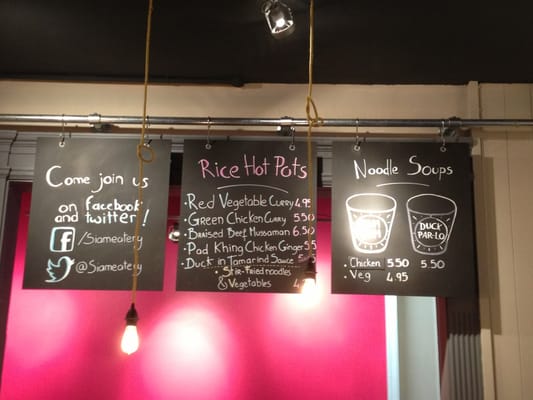 Come join us
on facebook
and twitter!
f /Siameatery
@Siameatery
Rice Hot Pots
• Red Vegetable Curry 4.95
• Green Chicken Curry 5.50
• Braised Beef Mussaman 6.50
• Pad Khing Chicken Ginger 5.5
• Duck in Tamarind Sauce
• Stir-Fried noodles
& Vegetables 4
Noodle Soups
DUCK
PAR-LO
• Chicken 5.50 5.50
• Veg 4.95